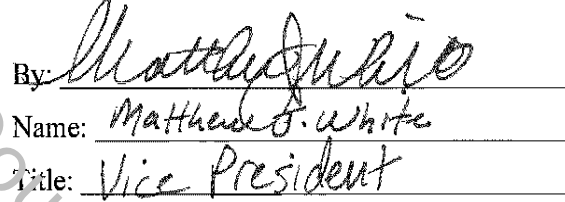 By: Matthew J. White
Name: Matthew J. White
Title: Vice President